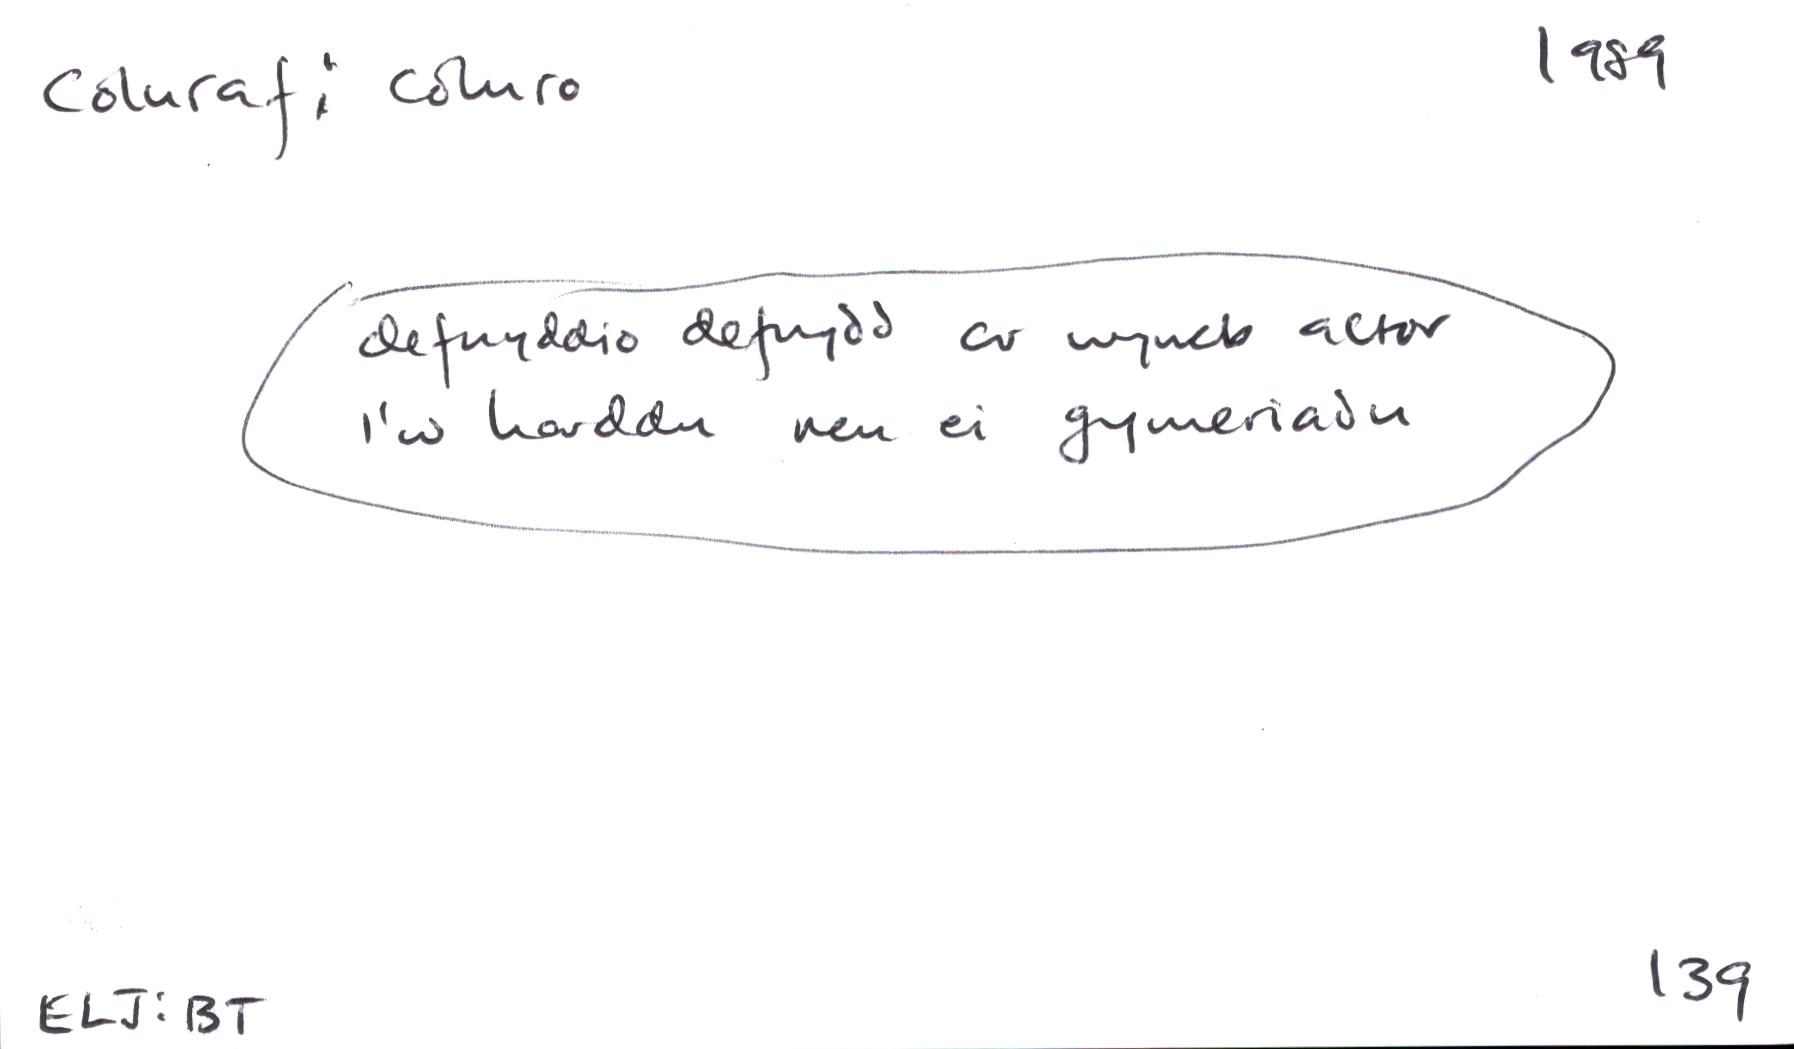 coluraf: coluro 1989
defnyddio defnydd ar wyneb actor
i'w harddu neu ei gymeriadu
ELJ: BT 139